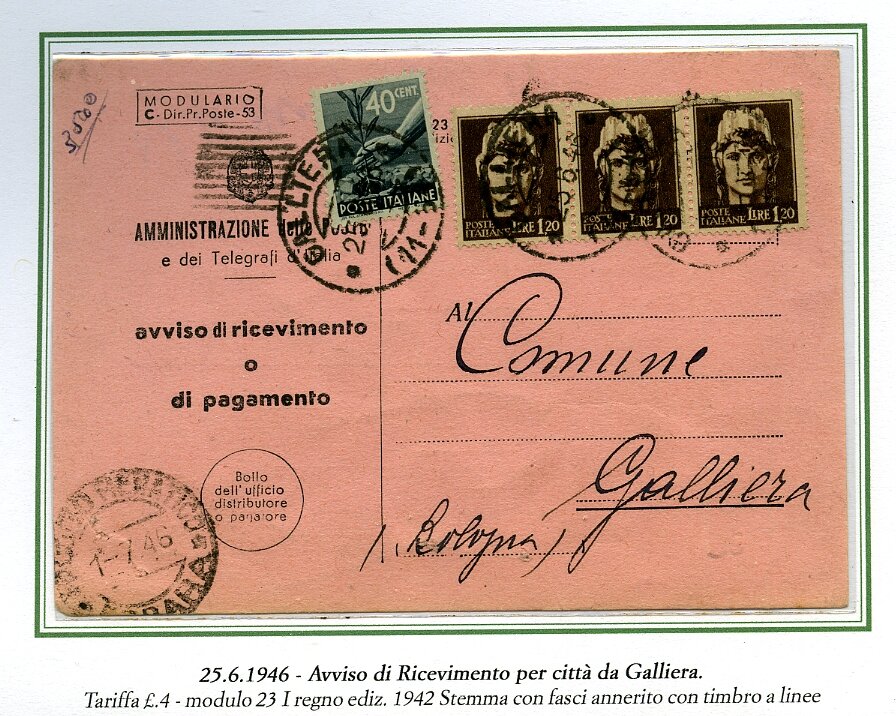 MODULARIO
C- Dir.Pr.Poste-53
40 CENT.
POSTE ITALIANE
23
POSTE ITALIANE LIRE 1,20
POSTE ITALIANE LIRE 1,20
POSTE ITALIANE LIRE 1,20
GALLIERA
AMMINISTRAZIONE delle Poste
e dei Telegrafi d'Italia
avviso di ricevimento
o
di pagamento
Al Comune
Galliera
(Bologna)
Bollo
dell'ufficio
distributore
o pagatore
1-7 46
25.6.1946 - Avviso di Ricevimento per città da Galliera.
Tariffa £.4 - modulo 23 I regno ediz. 1942 Stemma con fasci annerito con timbro a linee